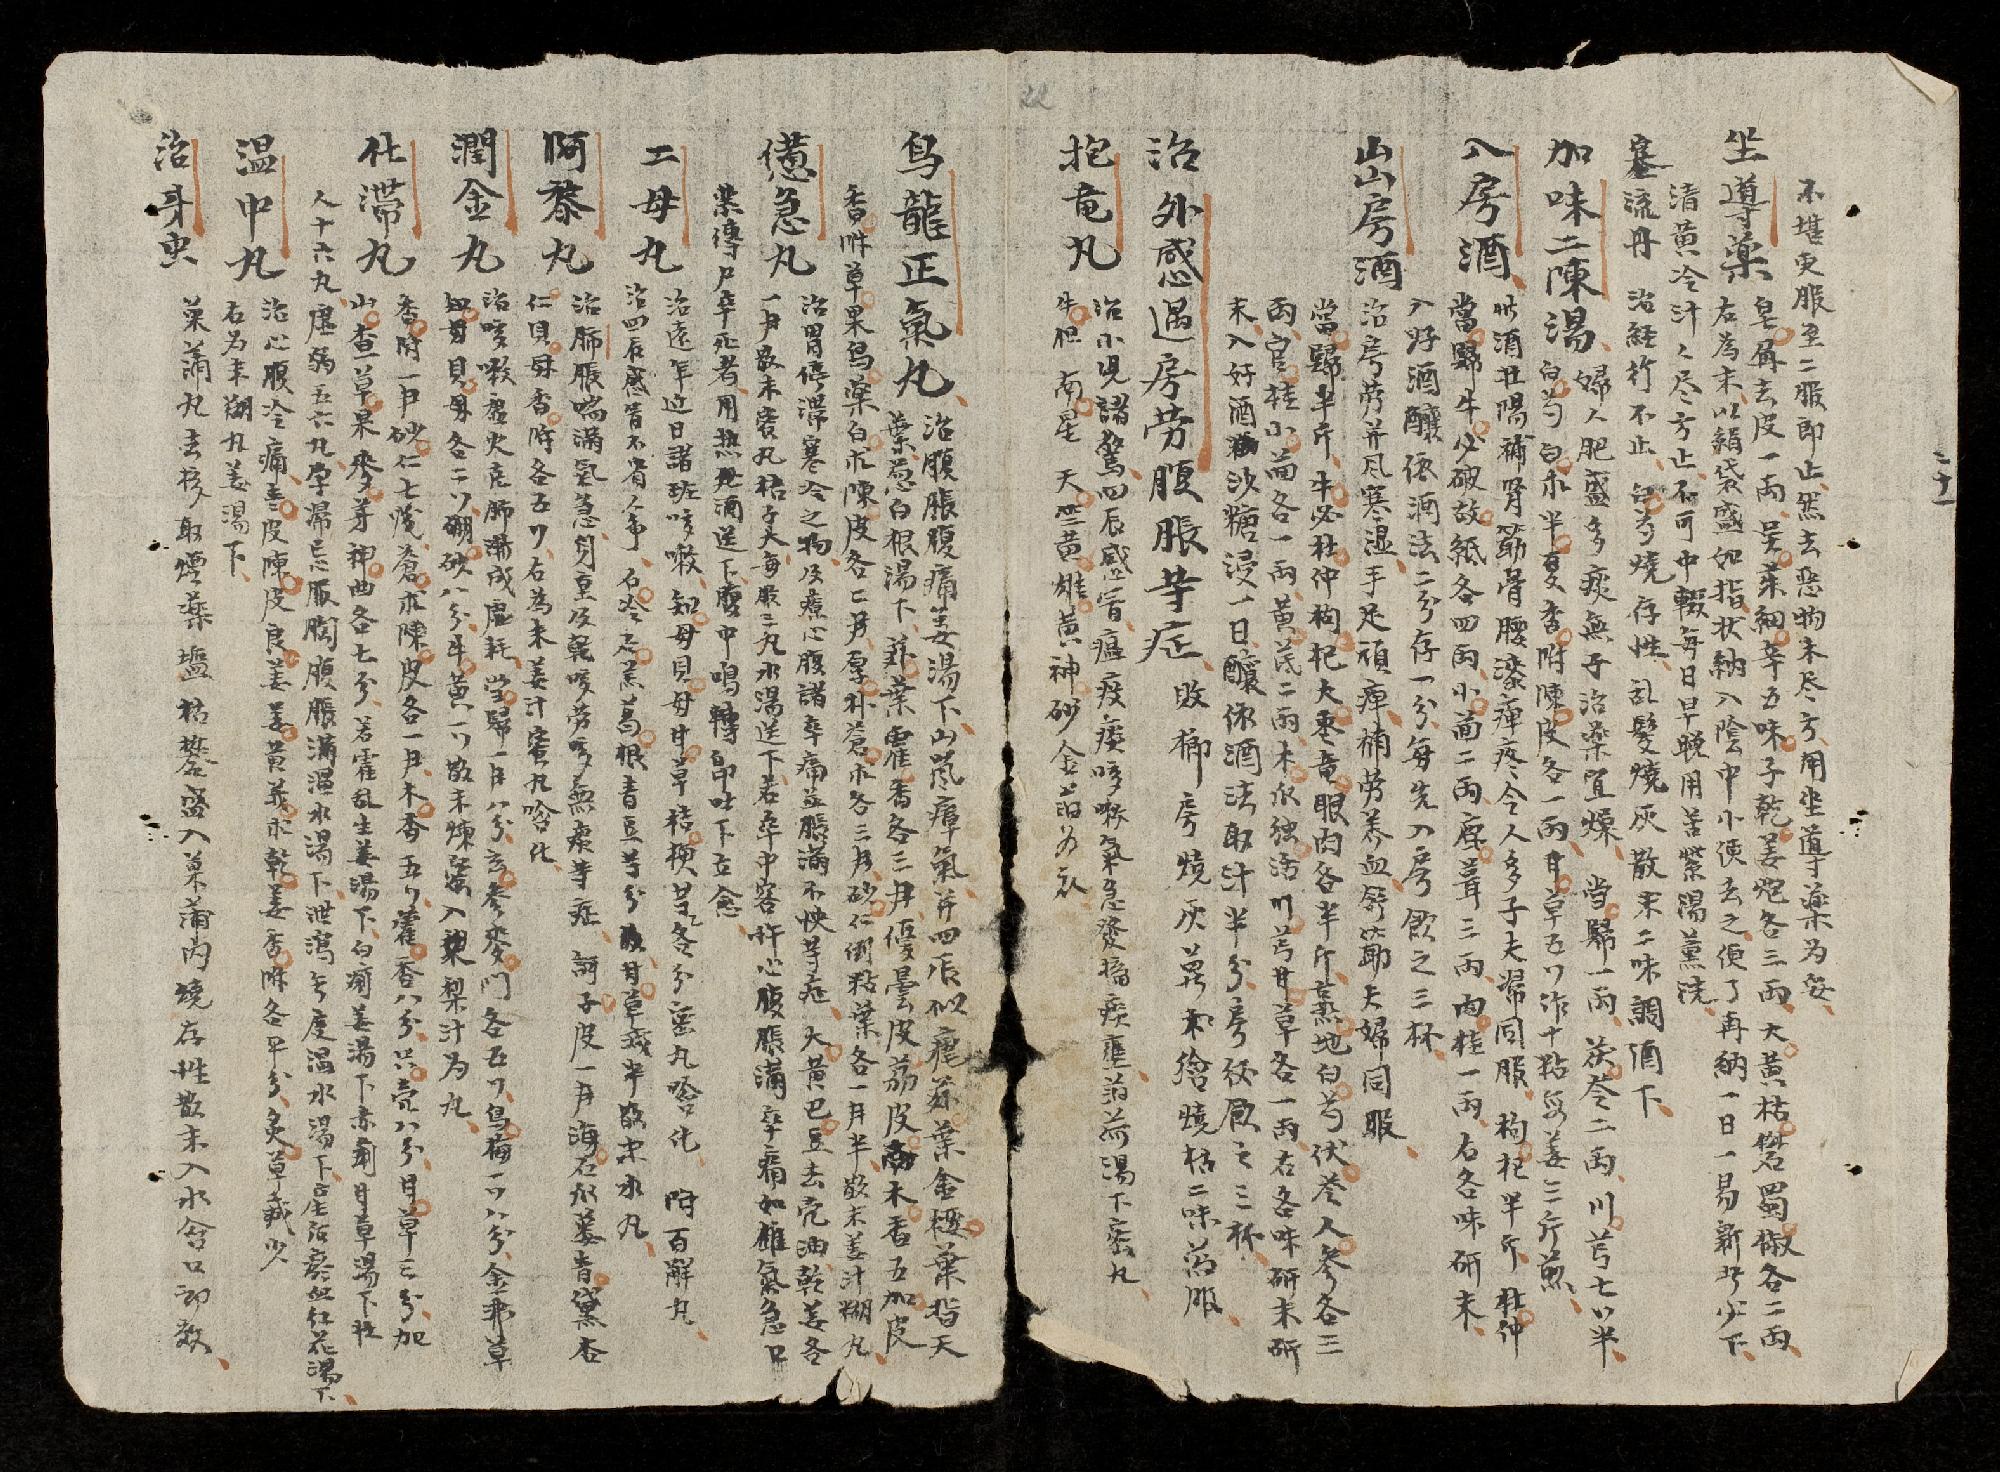 不堪更服至二服即止然去惡物未尽方用坐導藥为妥
坐導藥 皂角去皮一兩吳茱細辛五味子乾姜炮各三兩大黃枯礬蜀椒各二兩
右為末以絹袋盛如指狀納入陰中小便去之便了再納一日一易新必少下
清黃冷汁汁尽方止不可中輟每日早晚用苦葉湯薰洗
塞流丹 治經行不止 白芍燒存性乱髮燒灰散末二味調酒下
加味二陳湯 婦人肥盛多痰無子治藥宜燥 当歸一兩茯苓二兩川芎七𠃌半
白芍白朮半夏香附陳皮各一兩甘草五𠃌作十粘每姜三片煎
入房酒 此酒壯陽補腎筋骨腰膝痺疼令人多子夫婦同服枸杞半斤杜仲
當歸牛必破故紙各四兩小茴二兩鹿茸三兩肉桂一兩右各味研末
入好酒釀依酒法二分存一分每先入房飲之三杯
山山房酒 治房劳并風寒湿手足頑痺補劳养血舒筋夫婦同服
當歸半斤牛必杜仲枸杞大枣竜眼肉各半斤熟地白芍伏苓人參各三
兩官桂小茴各一兩黃芪二兩木瓜独活川芎甘草各一兩右各味研末研
末入好酒沙糖浸一日釀依酒法取汁半分房后飲之三杯
治外感遇房劳腹脹等症 敗榔房燒灰葬衣繪燒枯二味蒟服
抱竜丸 治小児諸驚四辰感冒瘟疫痰咳嗽氣急發搐痰壅泊荷湯下蜜丸
牛胆 南星 天竺黃雄黃神砂金泊为衣
烏龍正氣丸 治腹脹腹痛姜湯下山嵐瘴氣并四辰似瘧苏葉金櫻葉指天
葉葱白根湯下 苏葉霍香各三月優曇皮荔皮南木香五加皮
香附草果烏藥白朮陳皮各二月厚朴蒼朮各三月砂仁衛粘葉各一月半散末姜汁糊丸
俻急丸 治胃停滯寒冷之物及療心腹諸卒痛並脹滿不快等症 大黃巴豆去壳油乾姜各
一月散末蜜丸梧子大每服三丸水湯送下若卒中客忤心腹脹滿卒痛如錐氣急口
禁傳尸卒死者用热酒送下腹中鳴轉即吐下立愈
二母丸 治遠年近日諸班咳嗽知母貝母甘草桔梗等各分蜜丸噙化 附百解丸
治四辰感冒不省人事石羔葛根青豆等分甘草減半散末水丸
阿黎丸 治肺脹喘滿氣急身重及乾咳劳咳無痰等症 訶子皮一月海石瓜蒌青黛杏
仁貝母香附各五𠃌右為末姜汁蜜丸噙化
潤金丸 治咳嗽虛火克肺漸成虛耗当歸一月八分玄參麥門各五𠃌烏梅一𠃌八分金沸草
知母貝母各二𠃌硼砂八分牛黃一𠃌散末煉蜜入梨汁为丸
仕滯丸 香附一月砂仁七錢蒼朮陳皮各一月木香五𠃌霍香八分只壳八分甘草三分加
山查草果麥芽神曲各七分若霍乱生姜湯下白痢姜湯下赤痢甘草湯下壯
人十六丸虛弱五六丸孕婦忌服胸腹脹滿温水湯下泄瀉无度温水湯下產后瘀血红花湯下
温中丸 治心腹冷痛青皮陳皮良姜姜黃莪朮乾姜香附各平分炙草減少
右为末糊丸姜湯下
治牙虫 菓蒲丸去核取煙藥塩枯礬盛入菓蒲内燒存性散末入水含口即效
二十一
22